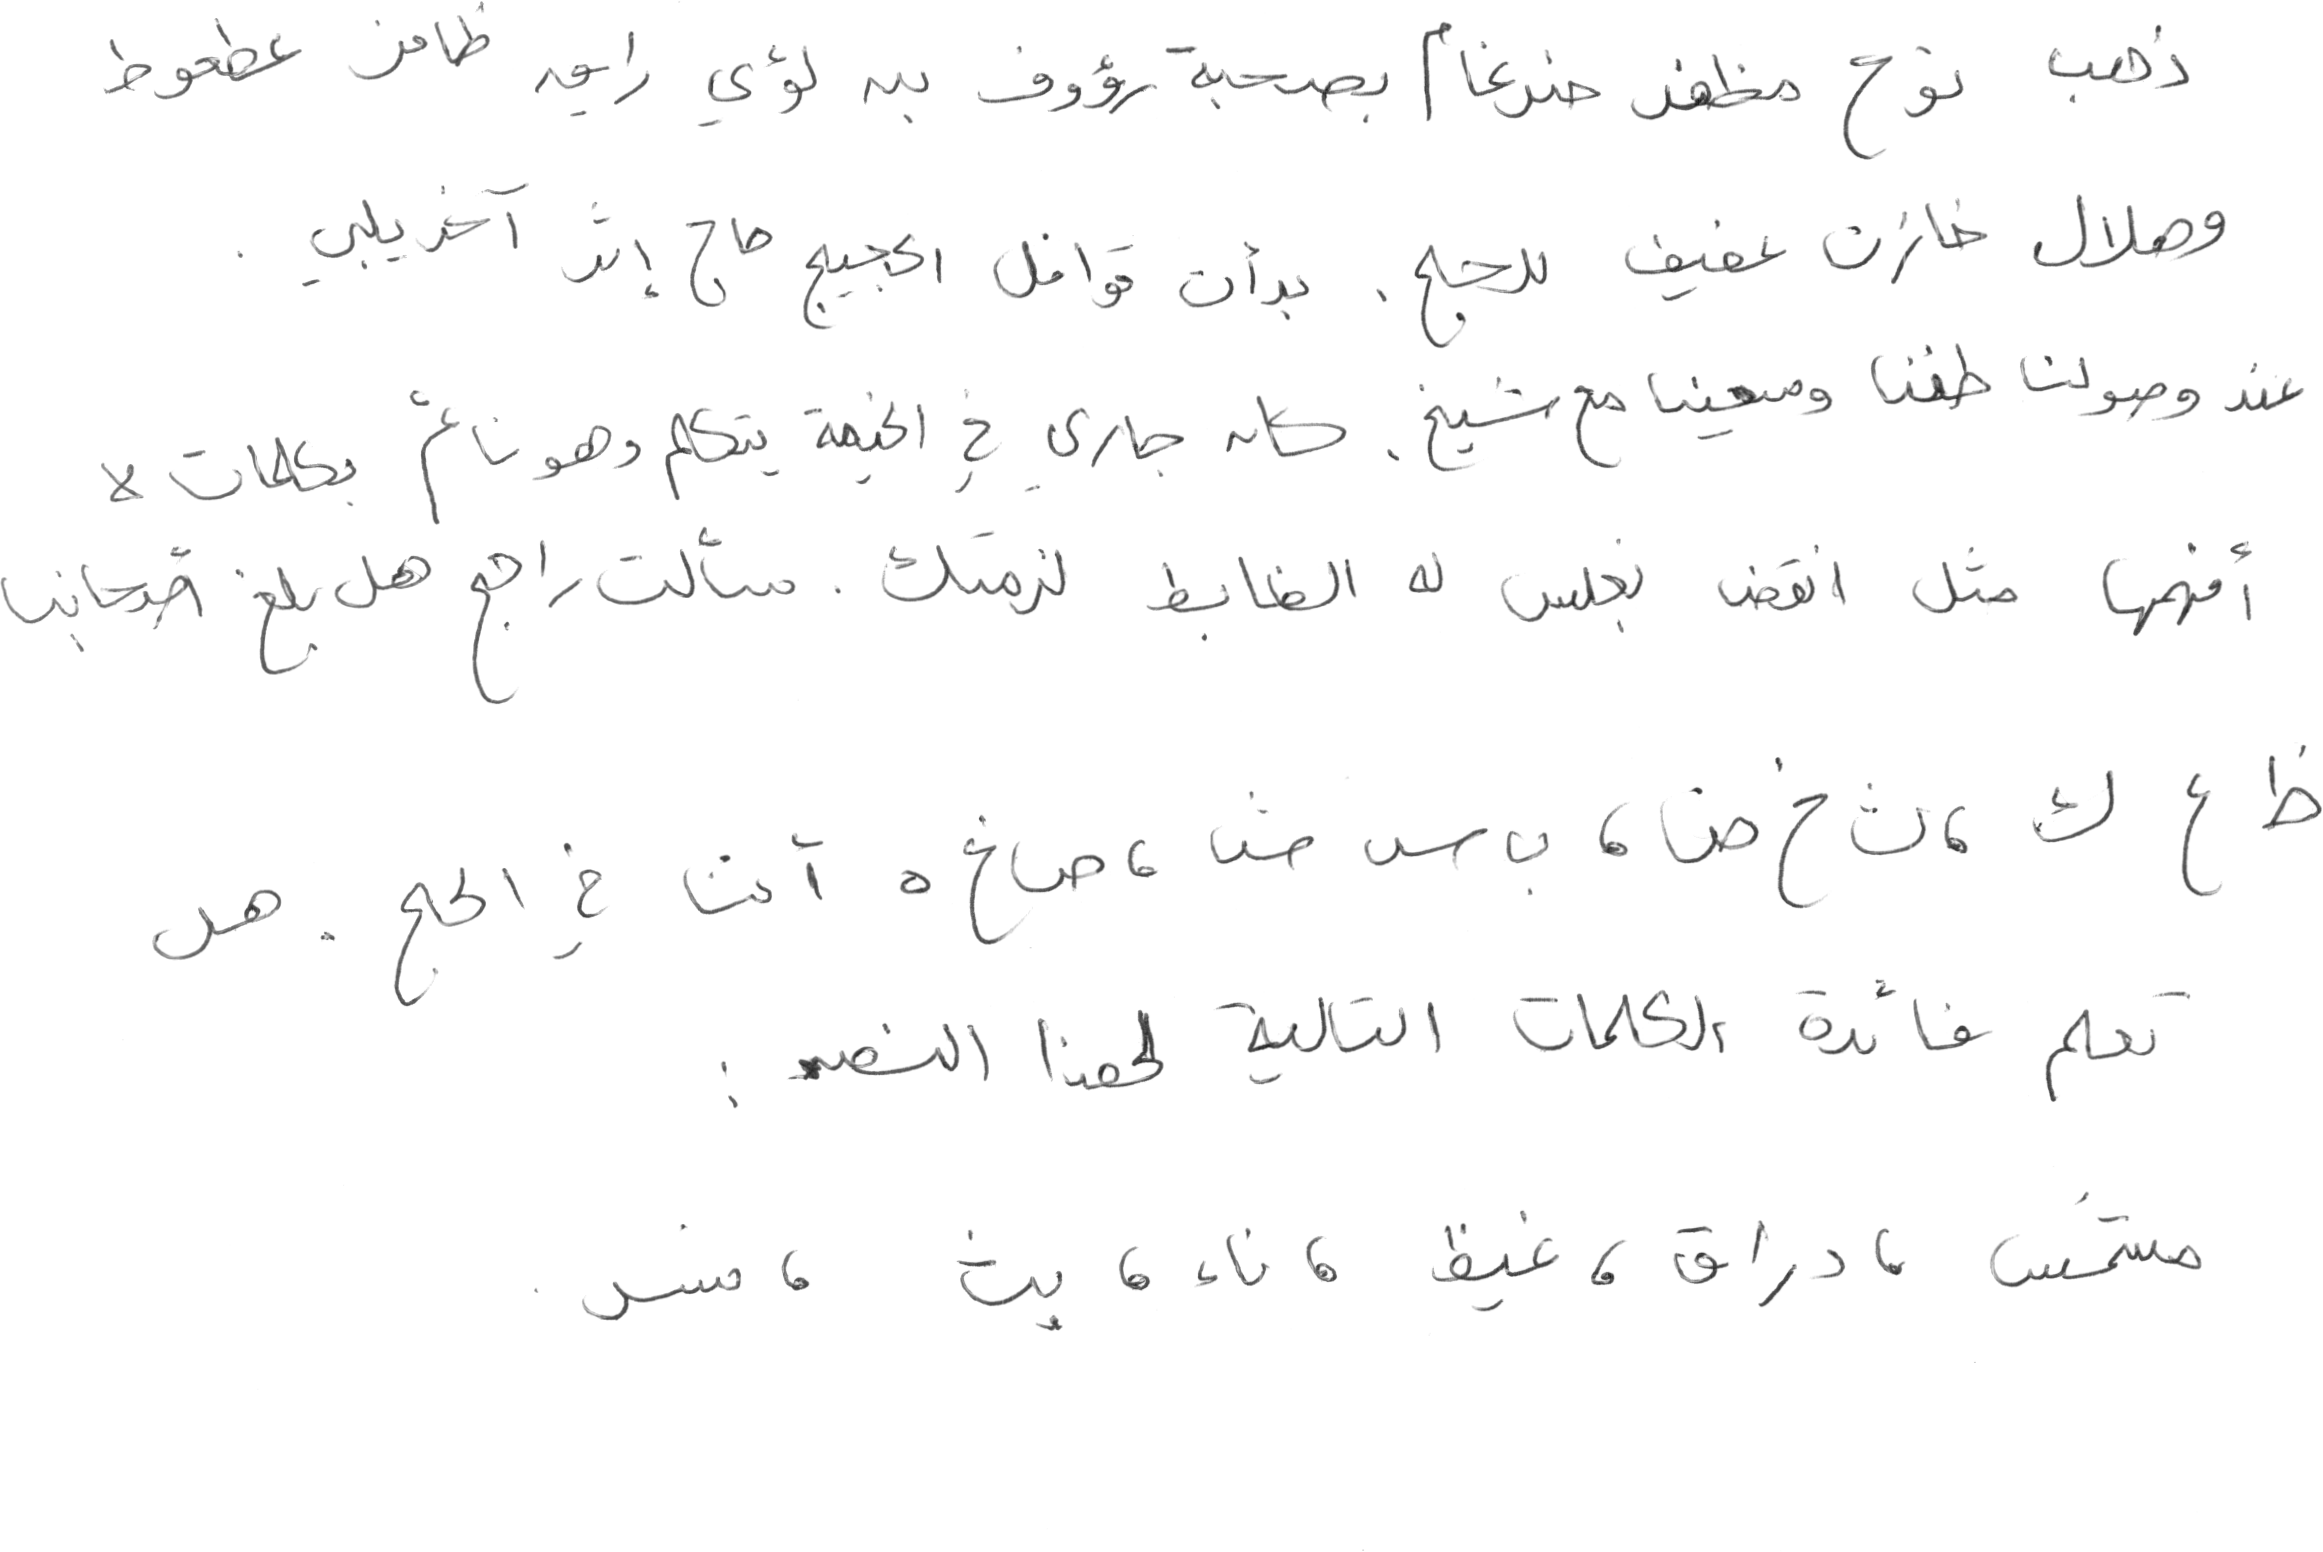 ذهب نوح مظفر ضرغام بصحبة رؤوف بن لؤي راجي ظافر عطعوط
وهلال خازن عفيف للحج. بدأت قوافل الحجيج حاج إثر آخر يلبي.
عند وصولنا طفنا وسعينا مع شيخ. كان جاري في الخيمة يتكلم وهو نائم بكلمات لا
أفهمها مثل انقض نجلس له الضابط لزمتك. سألت راجح هل بلغ
ظ ع ك، ث خ ض، ب س ش، ص غ ه آمنت في الحج. هل
تعلم فائدة الكلمات التالية لهذا النص:
دراق، غيظ، ناء، يث،